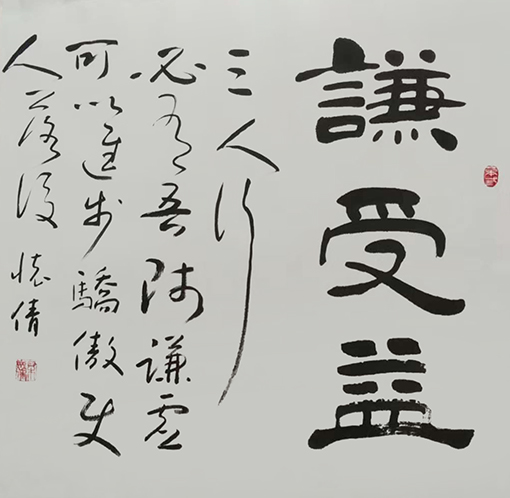 謙受益
三人行
必有吾师謙虛
可以進步驕傲使
人落後 懷倩